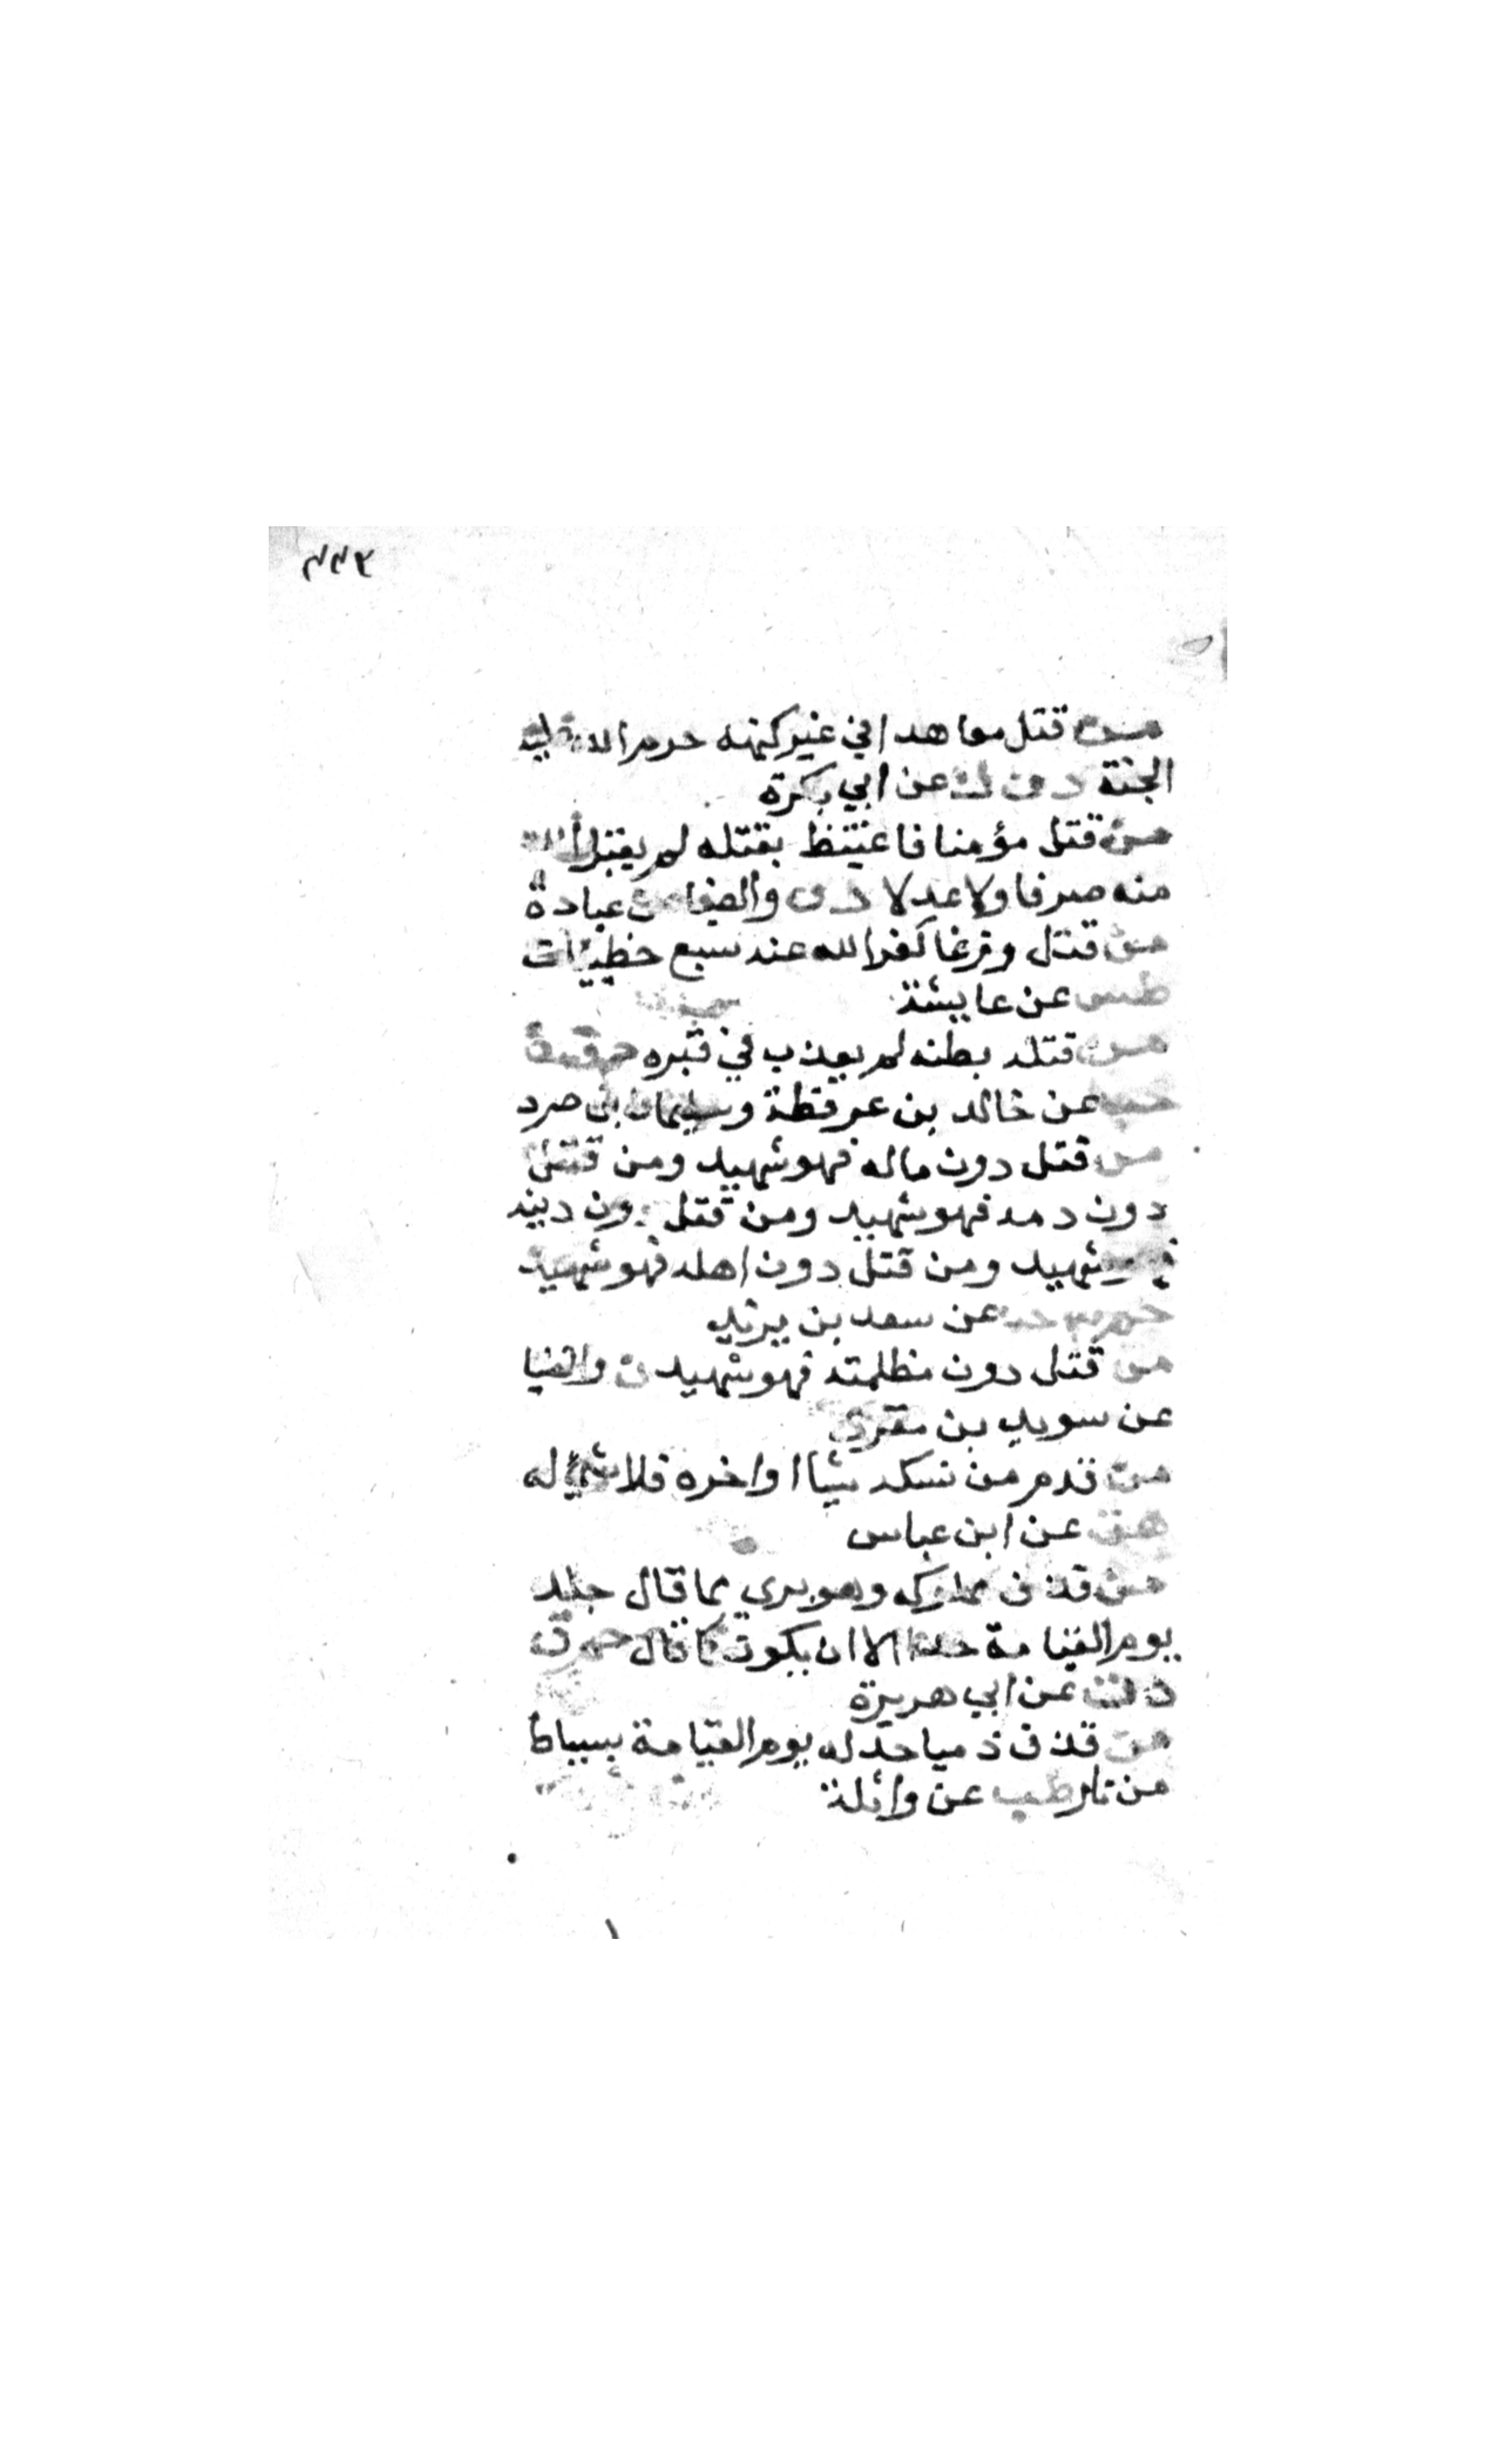 ٤٤٣
من قتل معاهدا في غير كنهه حرم الله عليه
الجنة د ن ك عن ابي بكرة
من قتل مؤمنا فاغتبط بقتله لم يقبل الله
منه صرفا ولا عدلا د والضيا عن عبادة
من قتل وزغا كفر الله عنه سبع خطيئات
طس عن عايشة
من قتله بطنه لم يعذب في قبره حم ت ن
حب عن خالد بن عرفطة وسليمان بن صرد
من قتل دون ماله فهو شهيد ومن قتل
دون دمه فهو شهيد ومن قتل دون دينه
فهو شهيد ومن قتل دون اهله فهو شهيد
حم حب عن سعد بن يزيد
من قتل دون مظلمته فهو شهيد ن والضيا
عن سويد بن مقرن
من قدم من نسكه شياا واخره فلا شئ له
هق عن ابن عباس
من قذف مملوكه وهو بري مما قال جلد
يوم القيامة حدا الا ان يكون كما قال حم ق
د ت عن ابي هريرة
من قذف ذميا حد له يوم القيامة بسياط
من نار طب عن واثلة